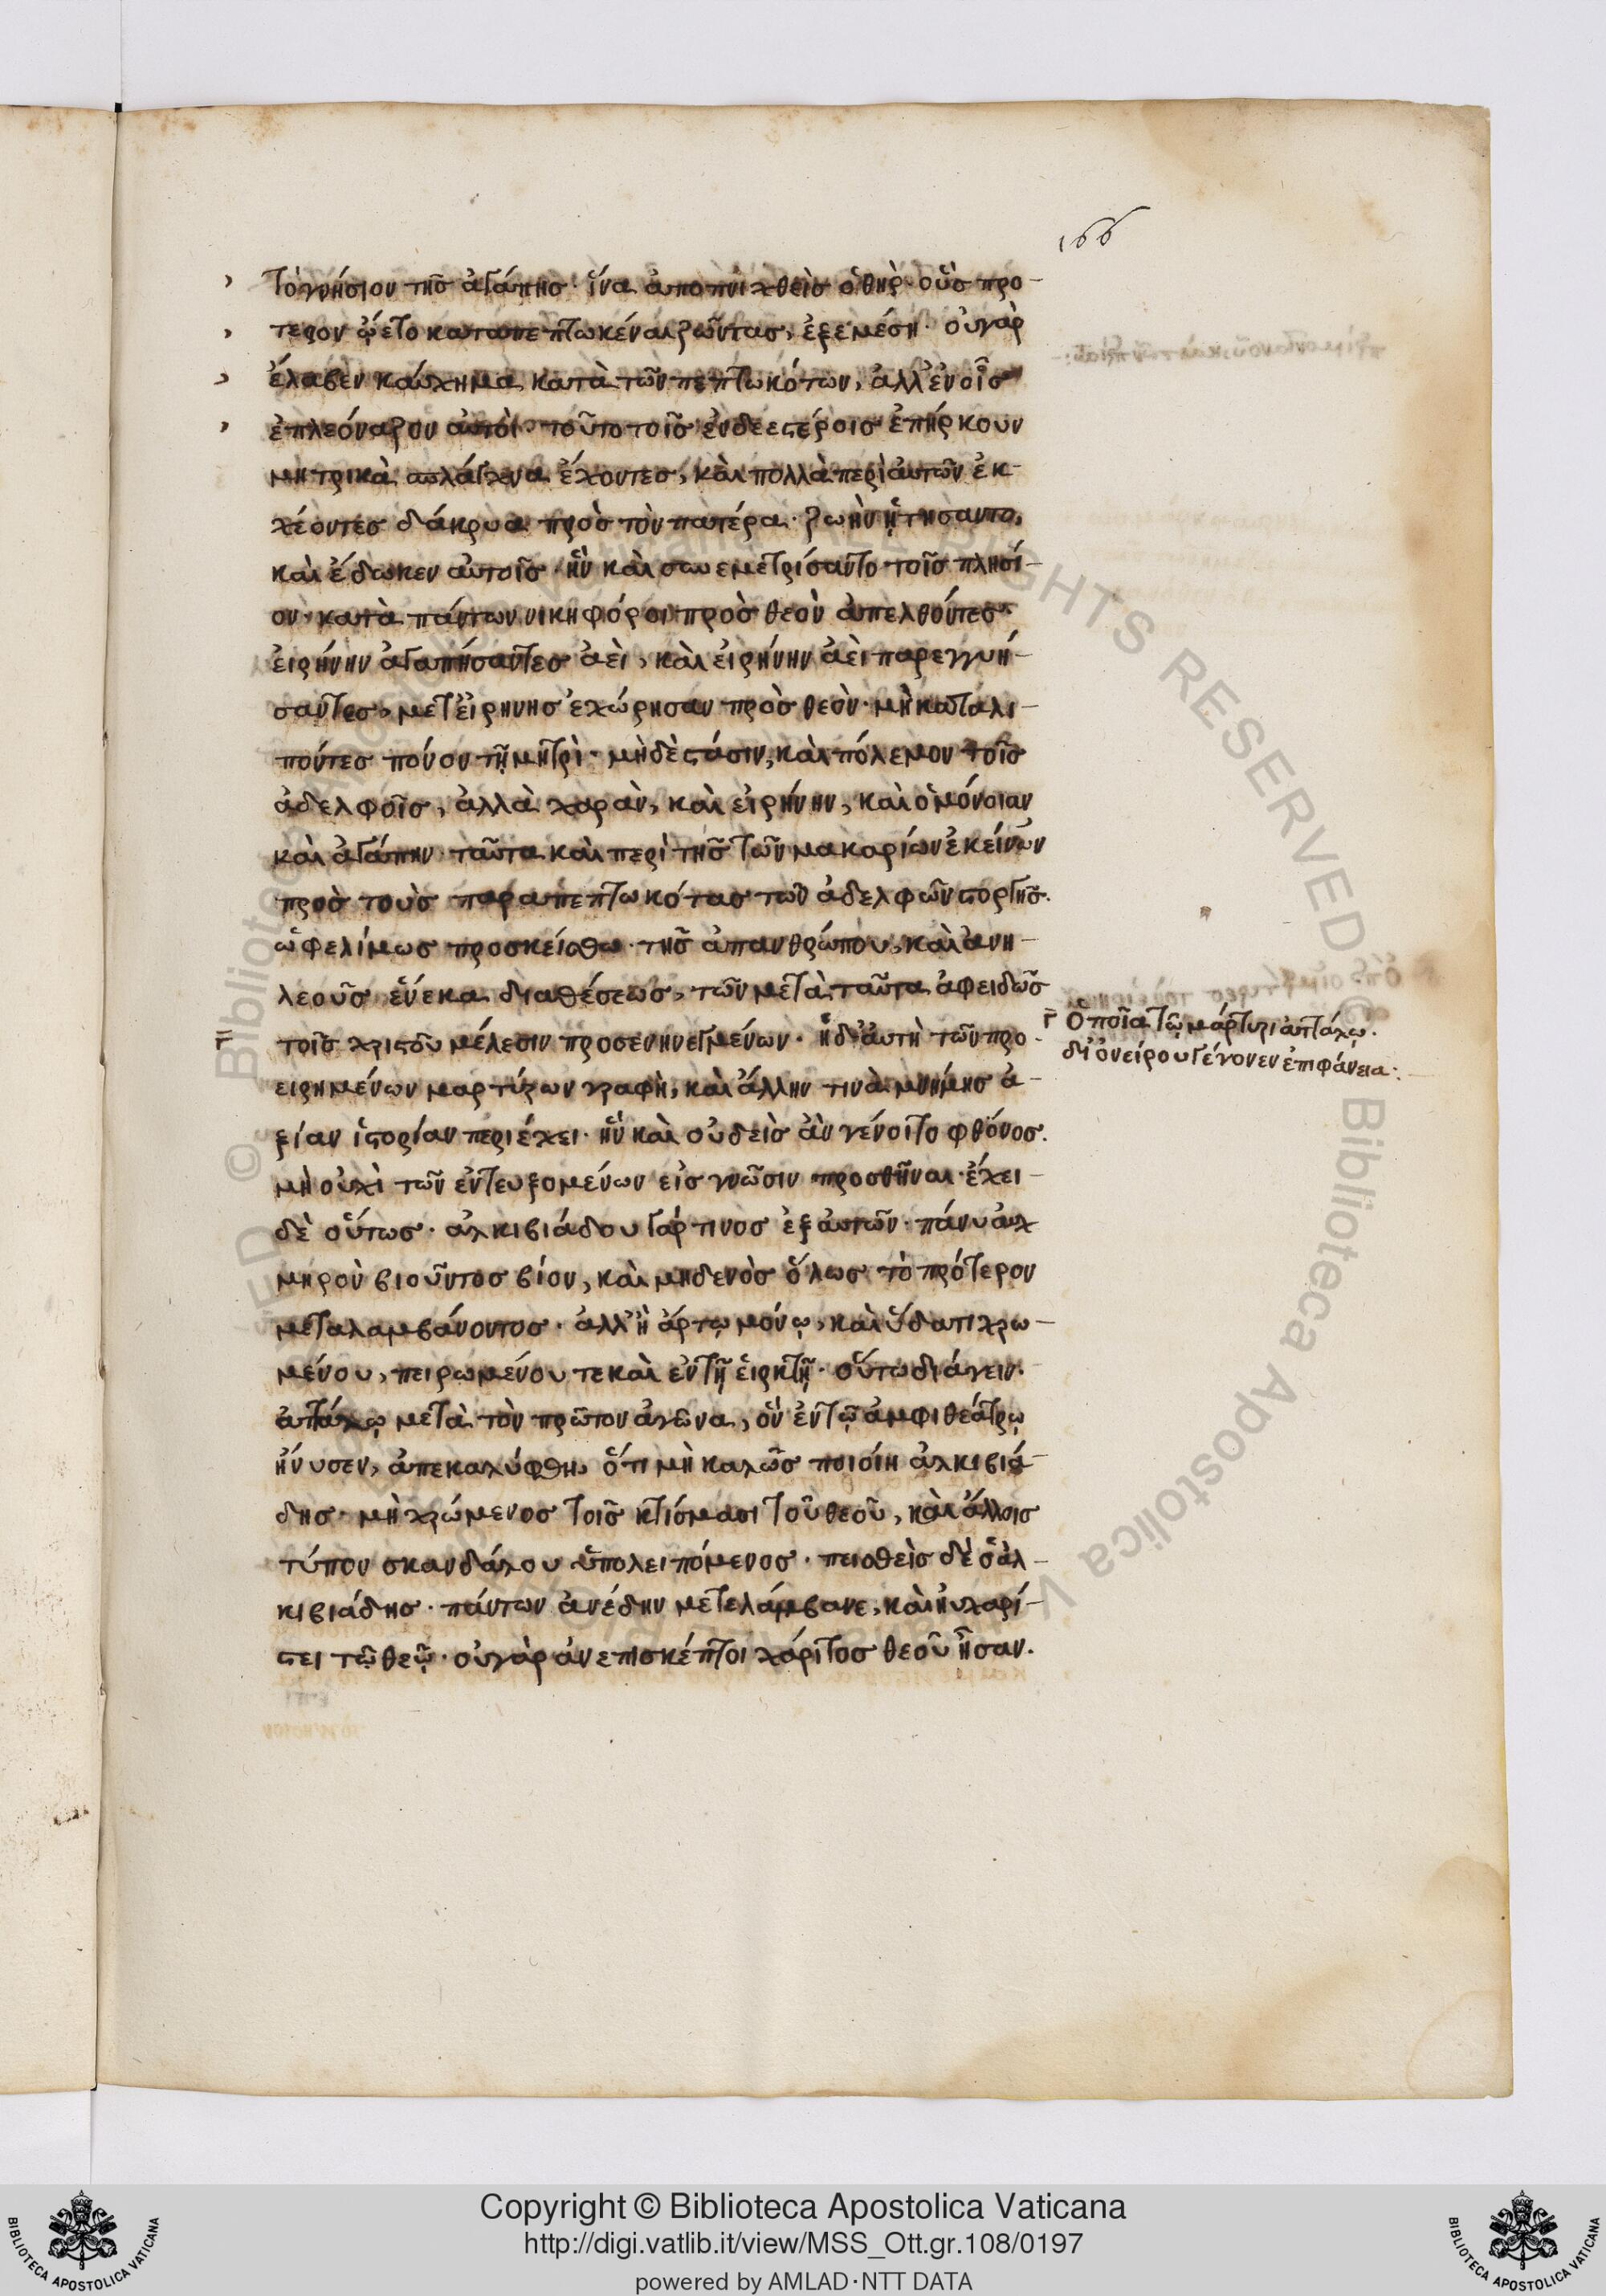 166
τὸ γνήσιον τῆς ἀγάπης· ἵνα ἀποπνιχθεὶς ὁ θὴρ· οὓς πρό-
τερον ᾤετο καταπεπτωκέναι ζῶντας, ἐξεμέσῃ· οὐ γὰρ
ἔλαβεν καύχημα κατὰ τῶν πεπτωκότων, ἀλλ' ἐν οἷς
ἐπλεόναζον αὐτοὶ· τοῦτο τοῖς ἐνδεεστέροις ἐπήρκουν
μητρικὰ σπλάγχνα ἔχοντες, καὶ πολλὰ περὶ αὐτῶν ἐκ-
χέοντες δάκρυα πρὸς τὸν πατέρα· ζωὴν ᾔτησαντο,
καὶ ἔδωκεν αὐτοῖς· ἣν καὶ συνεμετρίσαντο τοῖς πλησί-
ον· κατὰ πάντων νικηφόροι πρὸς θεὸν ἀπελθόντες·
εἰρήνην ἀγαπήσαντες ἀεὶ, καὶ εἰρήνην ἀεὶ παρεγγυή-
σαντες, μετ' εἰρήνης ἐχώρησαν πρὸς θεὸν· μὴ καταλι-
πόντες πόνον τῇ μητρὶ· μὴ δὲ στάσιν, καὶ πόλεμον τοῖς
ἀδελφοῖς, ἀλλὰ χαρὰν, καὶ εἰρήνην, καὶ ὁμόνοιαν
καὶ ἀγάπην· ταῦτα καὶ περὶ τῆς τῶν μακαρίων ἐκείνων
πρὸς τοὺς παραπεπτωκότας τῶν ἀδελφῶν στοργῆς.
ὠφελίμως προσκείσθω· τῆς ἀπανθρώπου, καὶ ἀνη-
λεοῦς ἕνεκα διαθέσεως, τῶν μετὰ ταῦτα ἀφειδῶς
γ τοῖς χριστοῦ μέλεσιν προσενηνεγμένων· ἡ δ' αὐτὴ τῶν προ-
ειρημένων μαρτύρων γραφὴ, καὶ ἄλλην τινὰ μνήμης ἀ-
ξίαν ἱστορίαν περιέχει· ἣν καὶ οὐδεὶς ἂν γένοιτο φθόνος.
μὴ οὐχὶ τῶν ἐντευξομένων εἰς γνῶσιν προσθῆναι· ἔχει
δὲ οὕτως· ἀλκιβιάδου γάρ τινος ἐξ αὐτῶν· πάνυ αὐχ
μηρὸν βιοῦντος βίον, καὶ μηδενὸς ὅλως τὸ πρότερον
μεταλαμβάνοντος· ἀλλ' ἢ ἄρτῳ μόνῳ, καὶ ὕδατι χρω-
μένου, πειρωμένου τε καὶ ἐν τῇ εἱρκτῇ· οὕτω διάγειν·
ἀττάλῳ μετὰ τὸν πρῶτον ἀγῶνα, ὃν ἐν τῷ ἀμφιθεάτρῳ
ἤνυσεν, ἀπεκαλύφθη, ὅτι μὴ καλῶς ποιοίη ἀλκιβιά-
δης· μὴ χρώμενος τοῖς κτίσμασι τοῦ θεοῦ, καὶ ἄλλοις
τύπον σκανδάλου ὑπολειπόμενος· πεισθεὶς δὲ ὁ ἀλ-
κιβιάδης· πάντων ἀνέδην μετελάμβανε, καὶ ηὐχαρί-
στει τῷ θεῷ· οὐ γὰρ ἀνεπισκέπτοι χάριτος θεοῦ ἦσαν.
γ ὁποῖα τῷ μάρτυρι ἀττάλῳ.
δι' ὀνείρου γέγονεν ἐπιφάνεια:
Copyright © Biblioteca Apostolica Vaticana
http://digi.vatlib.it/view/MSS_Ott.gr.108/0197
powered by AMLAD·NTT DATA
BIBLIOTECA APOSTOLICA VATICANA
BIBLIOTECA APOSTOLICA VATICANA